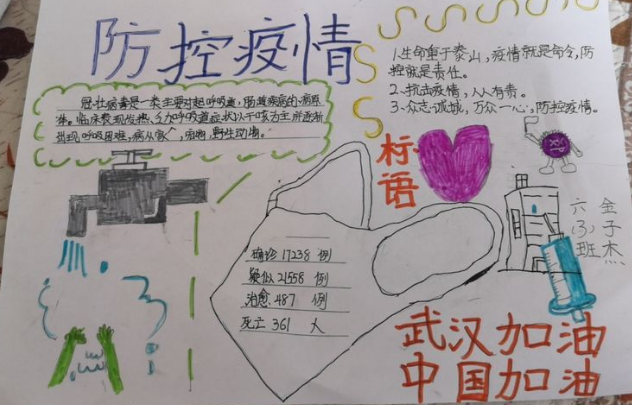 防控疫情
冠壮病毒是一类主要对起呼吸道、肠道疾病的病原
体。临床表现发热、乏力呼吸道症状以干咳为主并逐渐
出现呼吸困难,病从家厂,宠物,野生动物。
1.生命重于泰山,疫情就是命令,防
控就是责任。
2、抗击疫情,人人有责。
3、众志诚城,万众一心,防控疫情。
标
语
确诊 17238 例
疑似 21558 例
治愈 487 例
死亡 361 人
六(3)班
金子杰
武汉加油
中国加油